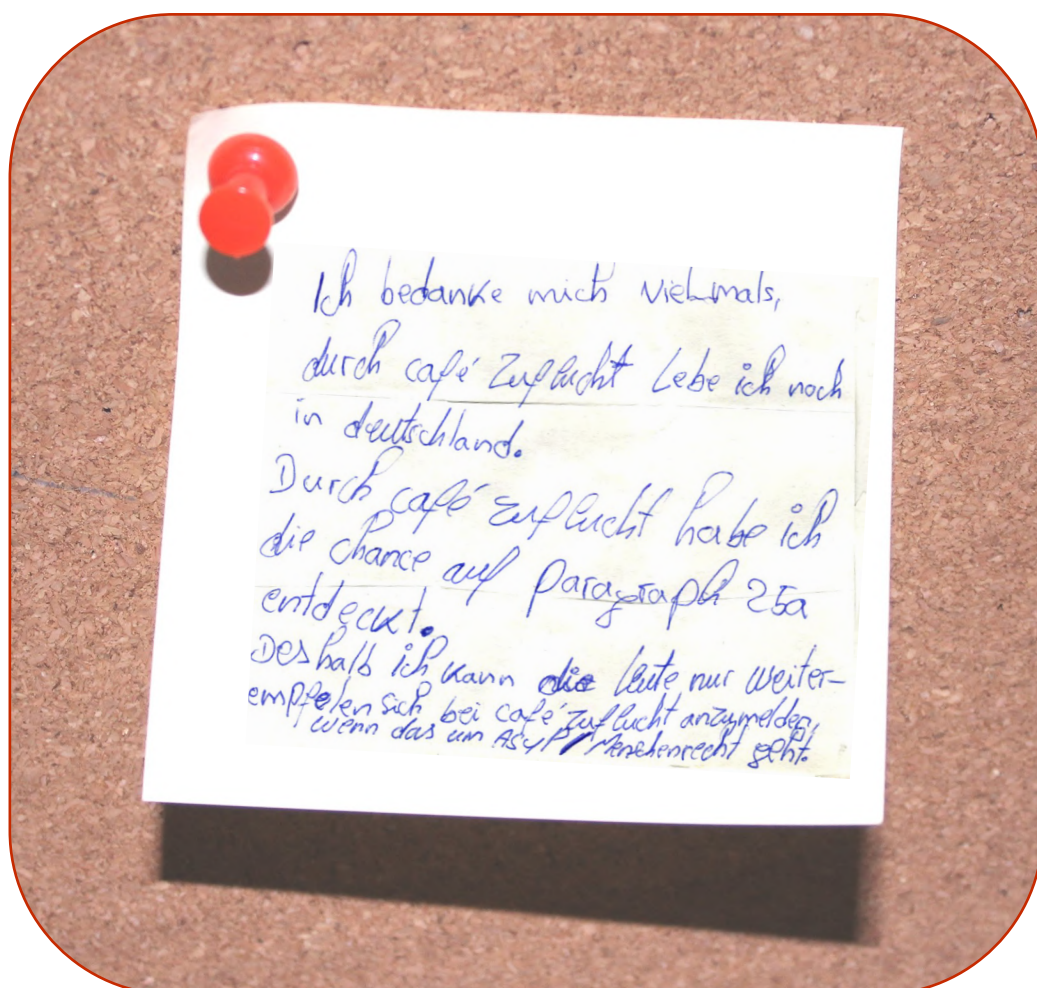 Ich bedanke mich vielmals,
durch café Zuflucht Lebe ich noch
in deutschland.
Durch café zuflucht habe ich
die chance auf Paragraph 25a
entdeckt.
Deshalb ich kann die leute nur weiter-
empfelen sich bei café zuflucht anzumelden,
wenn das um Asyl / Menschenrecht geht.